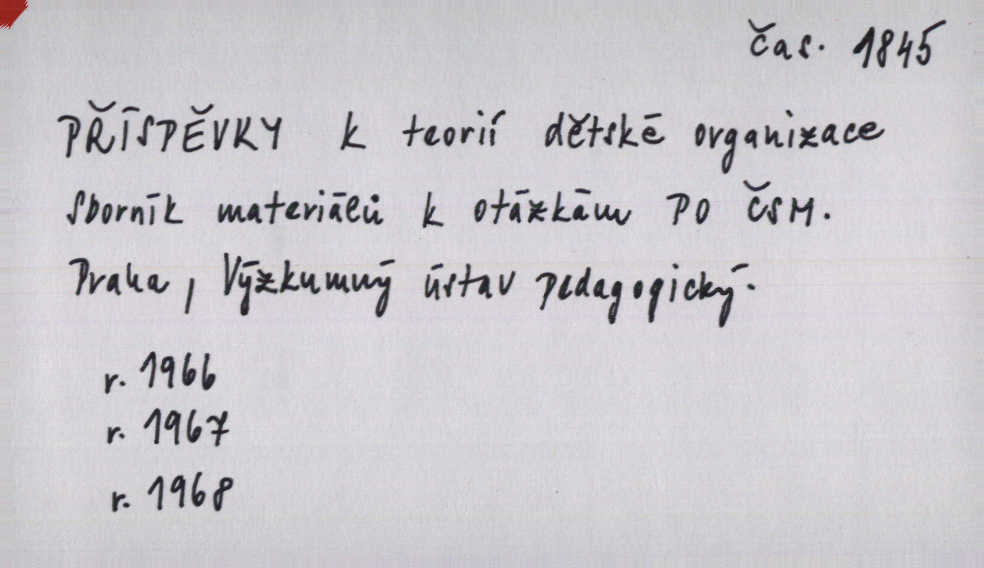 čas. 1845
PŘÍSPĚVKY k teorii dětské organizace
Sborník materiálů k otázkám PO ČSM.
Praha, Výzkumný ústav pedagogický.
r. 1966
r. 1967
r. 1968